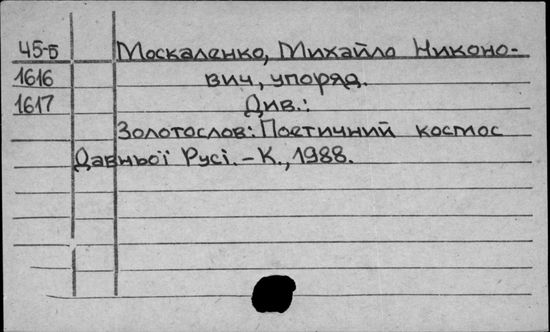 45-Б Москаленко, Михайло Никоно-
1616 вич, упоряд.
1617 Див.:
Золотослов: Поетичний космос
Давньої Русі. - К., 1988.